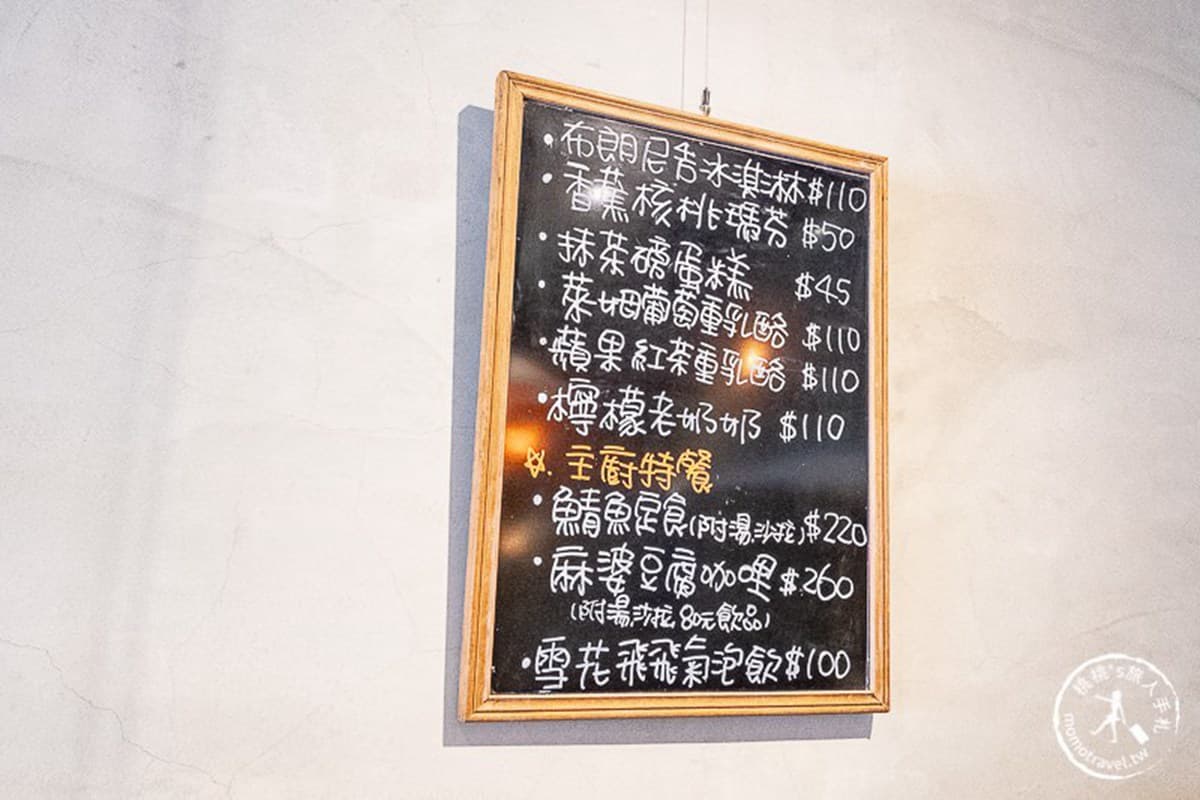 •布朗尼舎冰淇淋$110
•香蕉核桃瑪芬 $50
•抹茶磅蛋糕 $45
•萊姆葡萄重乳酪 $110
•蘋果紅茶重乳酪 $110
•檸檬老奶奶 $110
☆.主廚特餐
•鯖魚定食(附湯,沙拉)$220
•麻婆豆腐咖哩$260
(附湯,沙拉,80元飲品)
•雪花飛飛氣泡飲$100
桃桃's旅人手札
momotravel.tw